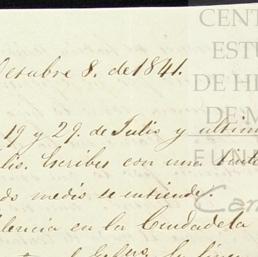 Octubre 8. de 1841.
19 y 29. de Julio y ultimo
lio. Escribes con una tinta
do medio se entiende.
dencia en la Ciudadela
CENT
ESTU
DE HI
DE M
FUN
Car